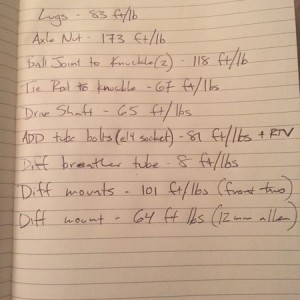 Lugs - 83 ft/lb
Axle Nut - 173 ft/lb
Ball Joint to Knuckle(2) - 118 ft/lb
Tie Rod to knuckle - 67 ft/lbs
Drive Shaft - 65 ft/lbs
ADD tube bolts (e14 socket) - 81 ft/lbs + RTV
Diff breather tube - 8 ft/lbs
Diff mounts - 101 ft/lbs (front two)
Diff mount - 64 ft lbs (12mm allen)